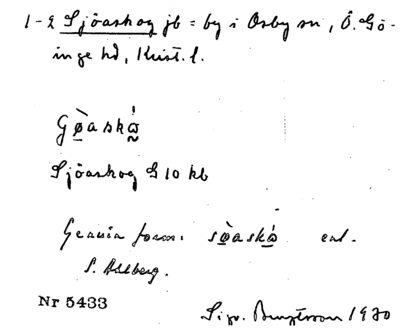 1-2 Sjöaskog jb = by i Osby sn, Ö. Gö-
inge hd, Krist. l.
Gø̀askå̀
Sjöaskog G 10 kb
Genuin form: sø̀askå̀ enl.
S. Ahlberg.
Nr 5433
Sigv. Bengtsson 1930